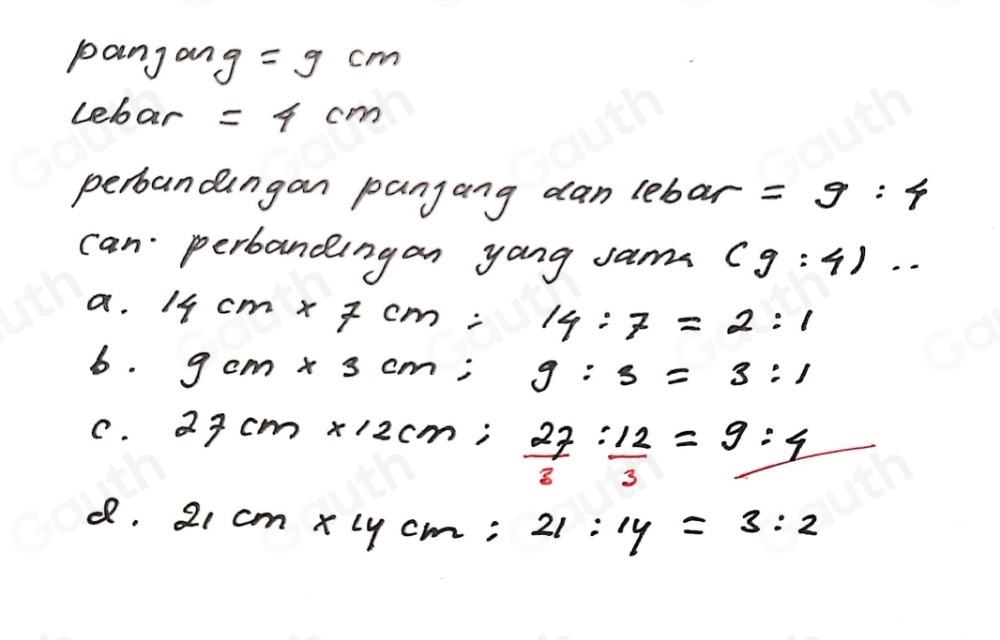 panjang = 9 cm
Lebar = 4 cm
perbandingan panjang dan lebar = 9 : 4
cari perbandingan yang sama (9 : 4) ..
a. 14 cm x 7 cm ; 14 : 7 = 2 : 1
b. 9 cm x 3 cm ; 9 : 3 = 3 : 1
c. 27 cm x 12 cm ; 27/3 : 12/3 = 9 : 4
d. 21 cm x 14 cm ; 21 : 14 = 3 : 2